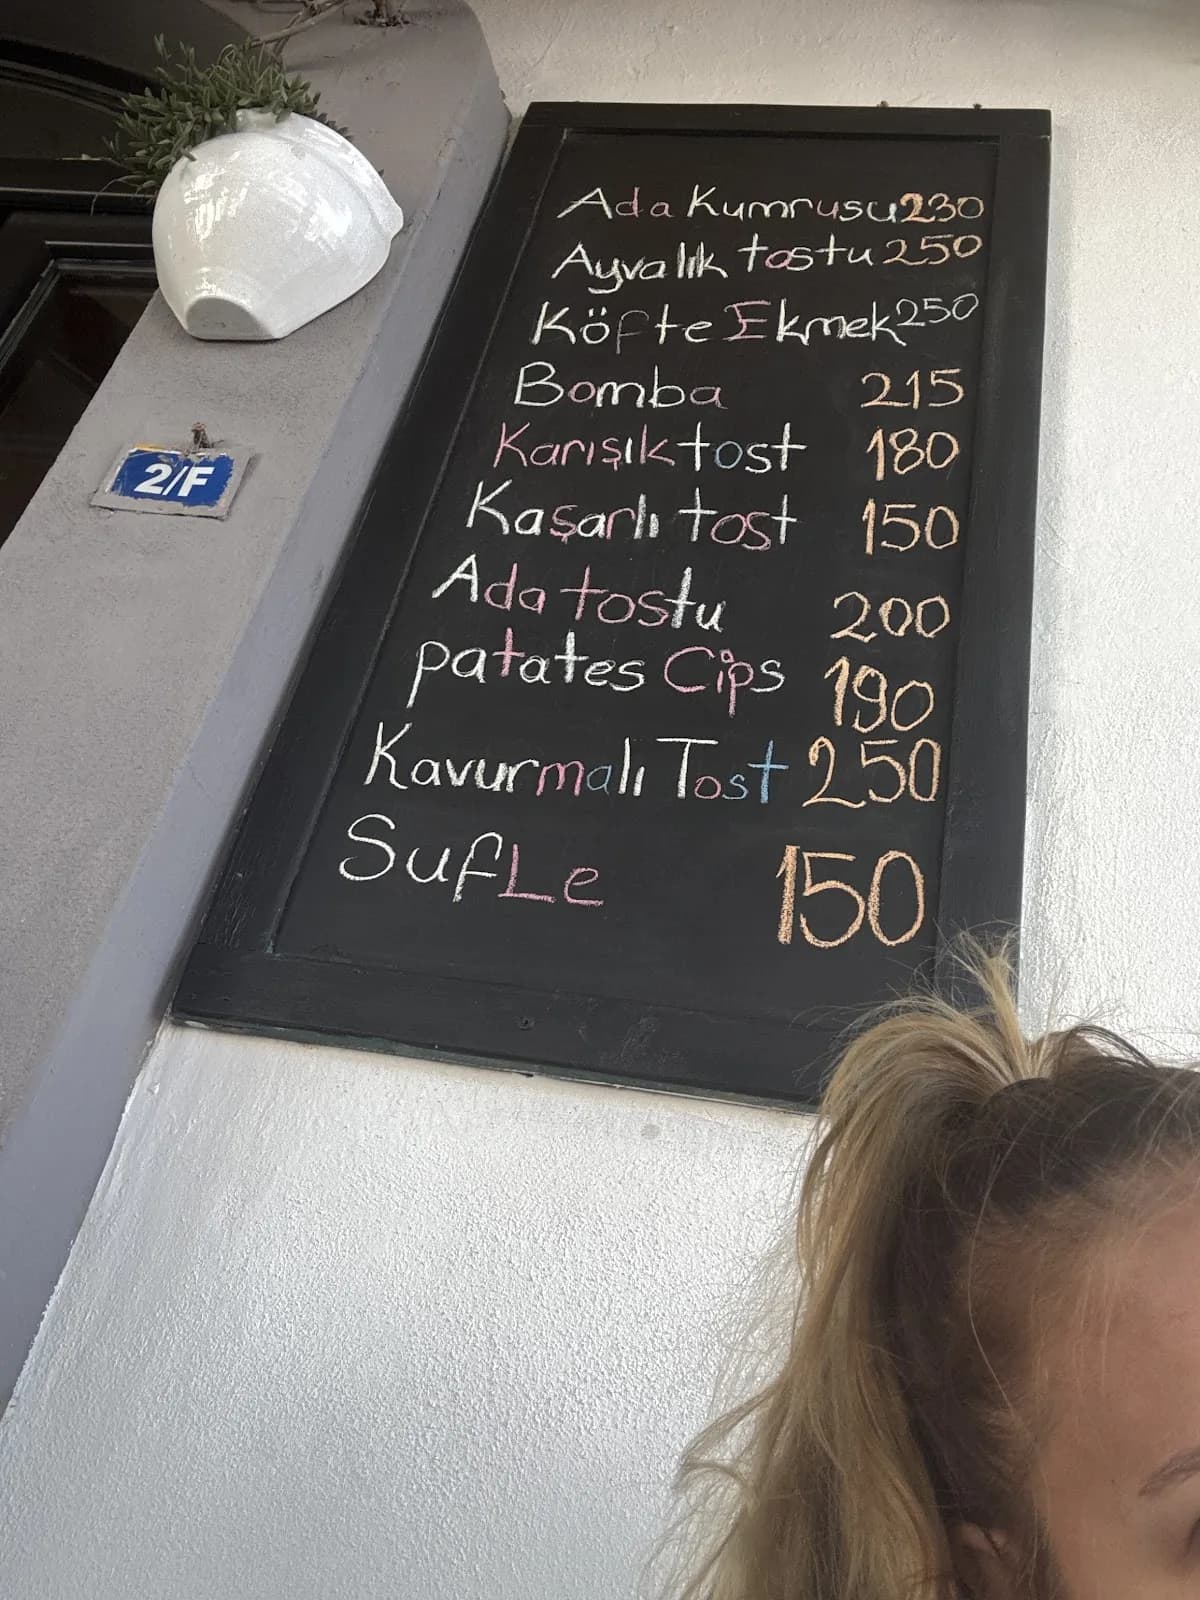 Ada Kumrusu 230
Ayvalık tostu 250
Köfte Ekmek 250
Bomba 215
Karışık tost 180
Kaşarlı tost 150
Ada tostu 200
patates Cips 190
Kavurmalı Tost 250
SufLe 150
2/F